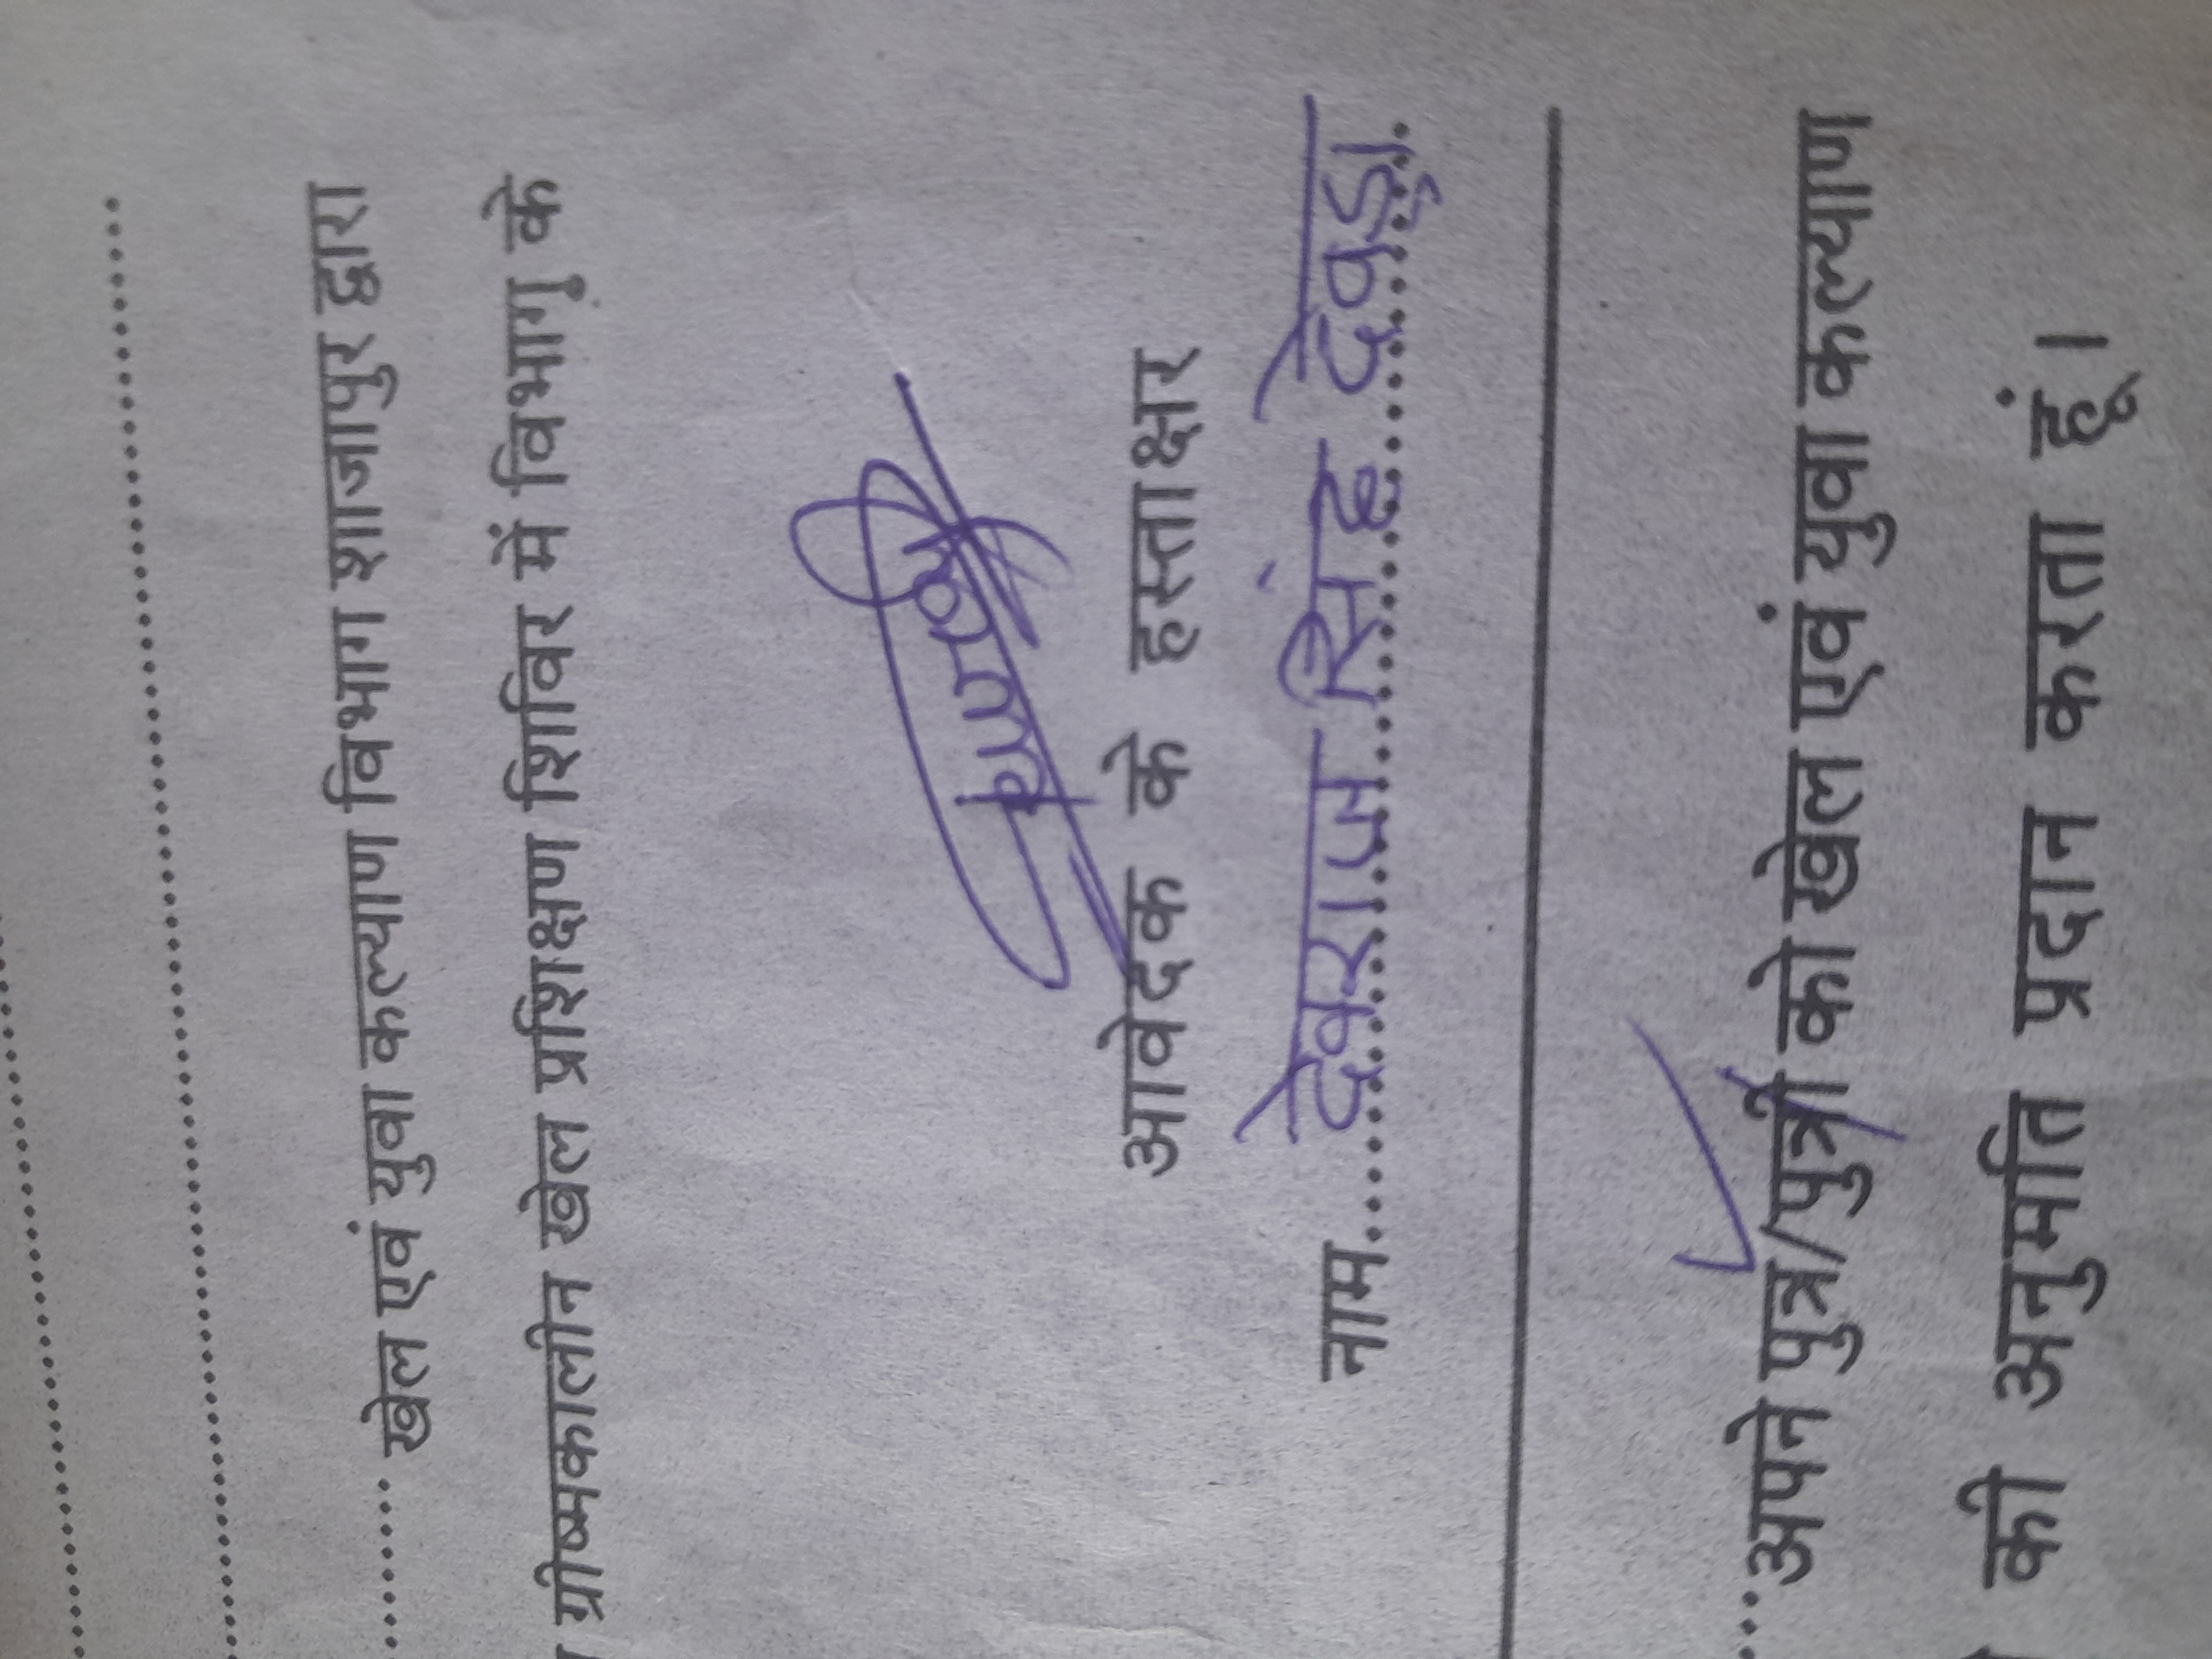 ........ खेल एवं युवा कल्याण विभाग शाजापुर द्वारा
ग्रीष्मकालीन खेल प्रशिक्षण शिविर में विभाग के
आवेदक के हस्ताक्षर
नाम......देवराज सिंह
....अपने पुत्र/पुत्री को खेल एवं युवा कल्याण
की अनुमति प्रदान करता हूं।